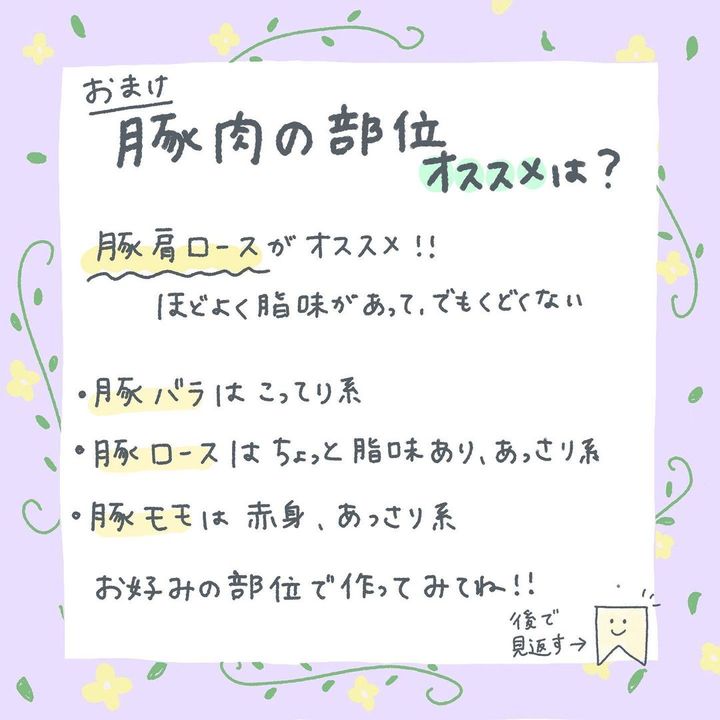 おまけ
豚肉の部位
オススメは?
豚肩ロースがオススメ!!
ほどよく脂味があって、でもくどくない
・豚バラはこってり系
・豚ロースはちょっと脂味あり、あっさり系
・豚モモは赤身、あっさり系
お好みの部位で作ってみてね!!
後で
見返す→